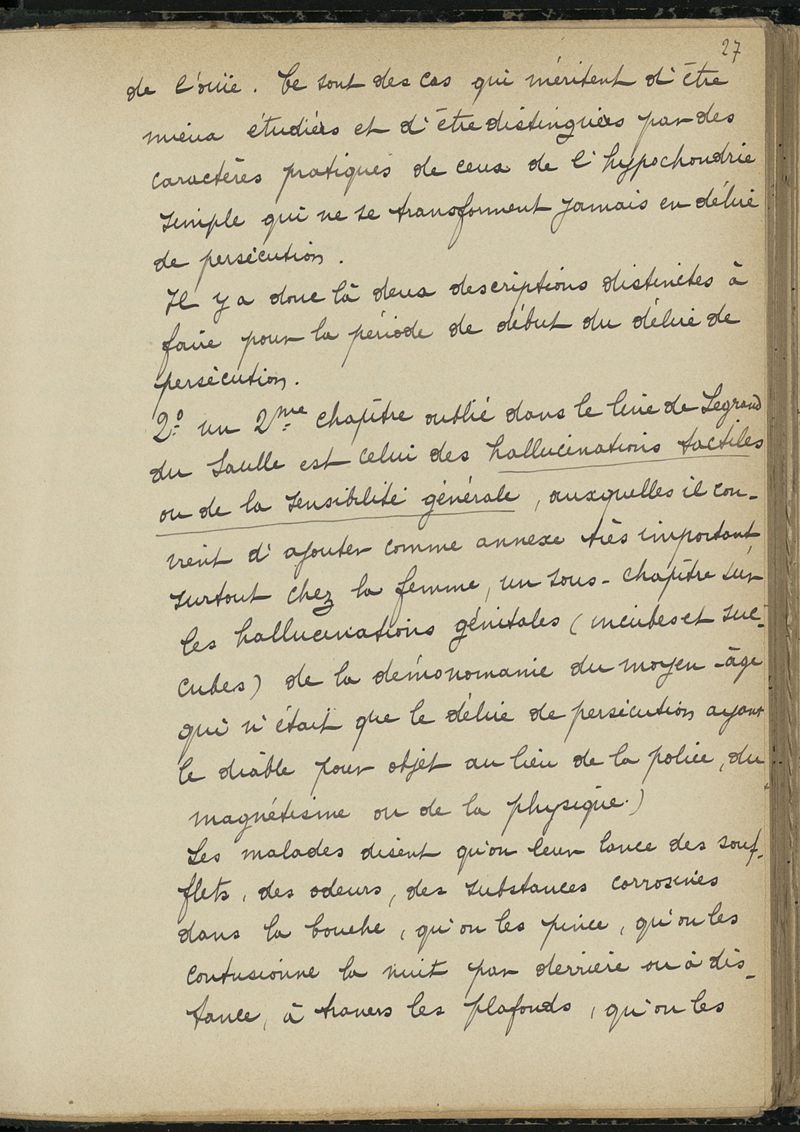 27
de l'ouïe. Ce sont des cas qui méritent d'être
mieux étudiés et d'être distingués par des
caractères pratiques de ceux de l'hypochondrie
simple qui ne se transforment jamais en délire
de persécution.
Il y a donc là deux descriptions distinctes à
faire pour la période de début du délire de
persécution.
2º un 2me chapître oublié dans le livre de Legrand
du Saulle est celui des hallucinations tactiles
ou de la sensibilité générale, auxquelles il con-
vient d'ajouter comme annexe très important,
surtout chez la femme, un sous-chapître sur
les hallucinations génitales (incubes et suc-
cubes) de la démonomanie du moyen-âge
qui n'était que le délire de persécution ayant
le diable pour objet au lieu de la police, du
magnétisme ou de la physique.)
Les malades disent qu'on leur lance des souf-
flets, des odeurs, des substances corrosives
dans la bouche, qu'on les pince, qu'on les
contusionne la nuit par derrière ou à dis-
tance, à travers les plafonds, qu'on les